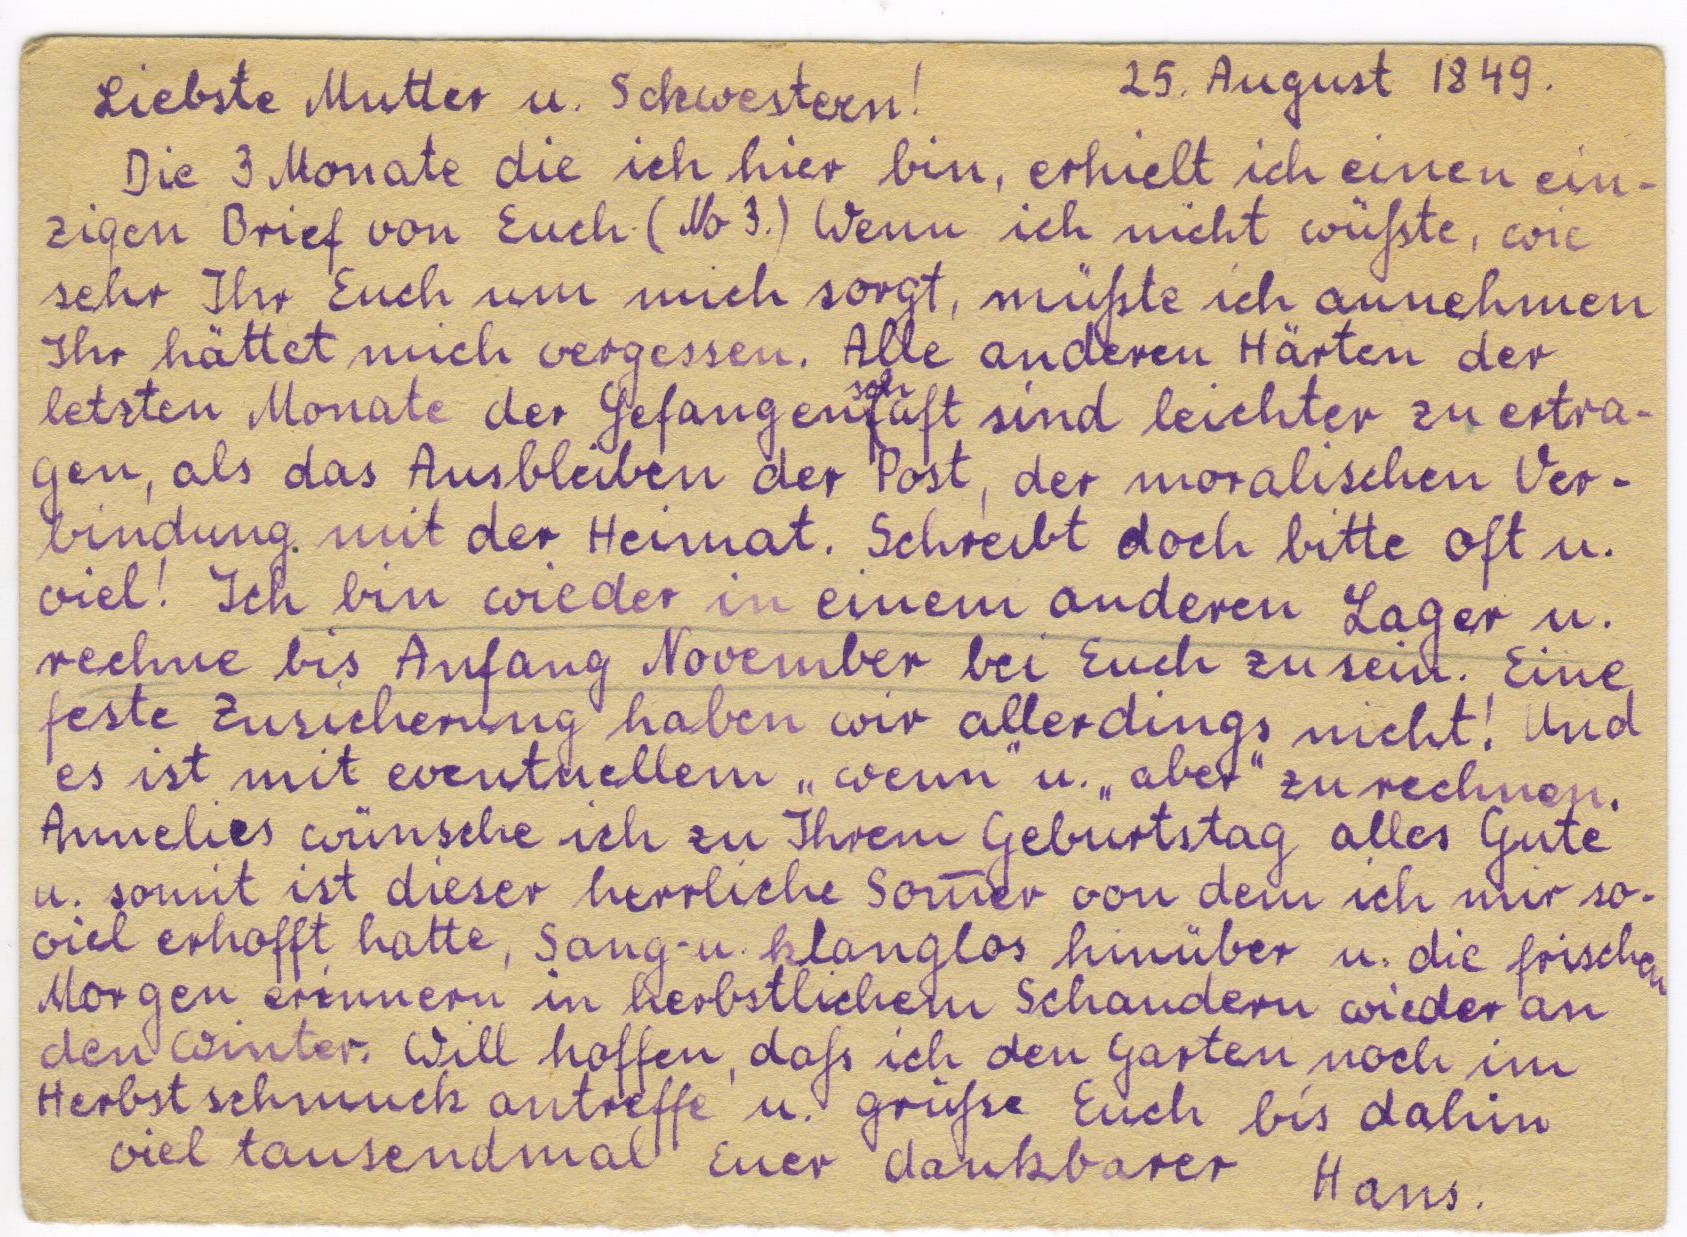 25. August 1849.
Liebste Mutter u. Schwestern!
Die 3 Monate die ich hier bin, erhielt ich einen ein-
zigen Brief von Euch (No 3.) Wenn ich nicht wüßste, wie
sehr Ihr Euch um mich sorgt, müßste ich annehmen
Ihr hättet mich vergessen. Alle anderen Härten der
letzten Monate der Gefangenschaft sind leichter zu ertra-
gen, als das Ausbleiben der Post, der moralischen Ver-
bindung mit der Heimat. Schreibt doch bitte oft u.
viel! Ich bin wieder in einem anderen Lager u.
rechne bis Anfang November bei Euch zu sein. Eine
feste Zusicherung haben wir allerdings nicht! Und
es ist mit eventuellem „wenn" u. „aber" zu rechnen.
Annelies wünsche ich zu Ihrem Geburtstag alles Gute
u. somit ist dieser herrliche Som̅er von dem ich mir so-
viel erhofft hatte, Sang- u. klanglos hinüber u. die frischen
Morgen erinnern in herbstlichem Schaudern wieder an
den Winter. Will hoffen, daß ich den Garten noch im
Herbstschmuck antreffe u. grüße Euch bis dahin
viel tausendmal Euer dankbarer Hans.